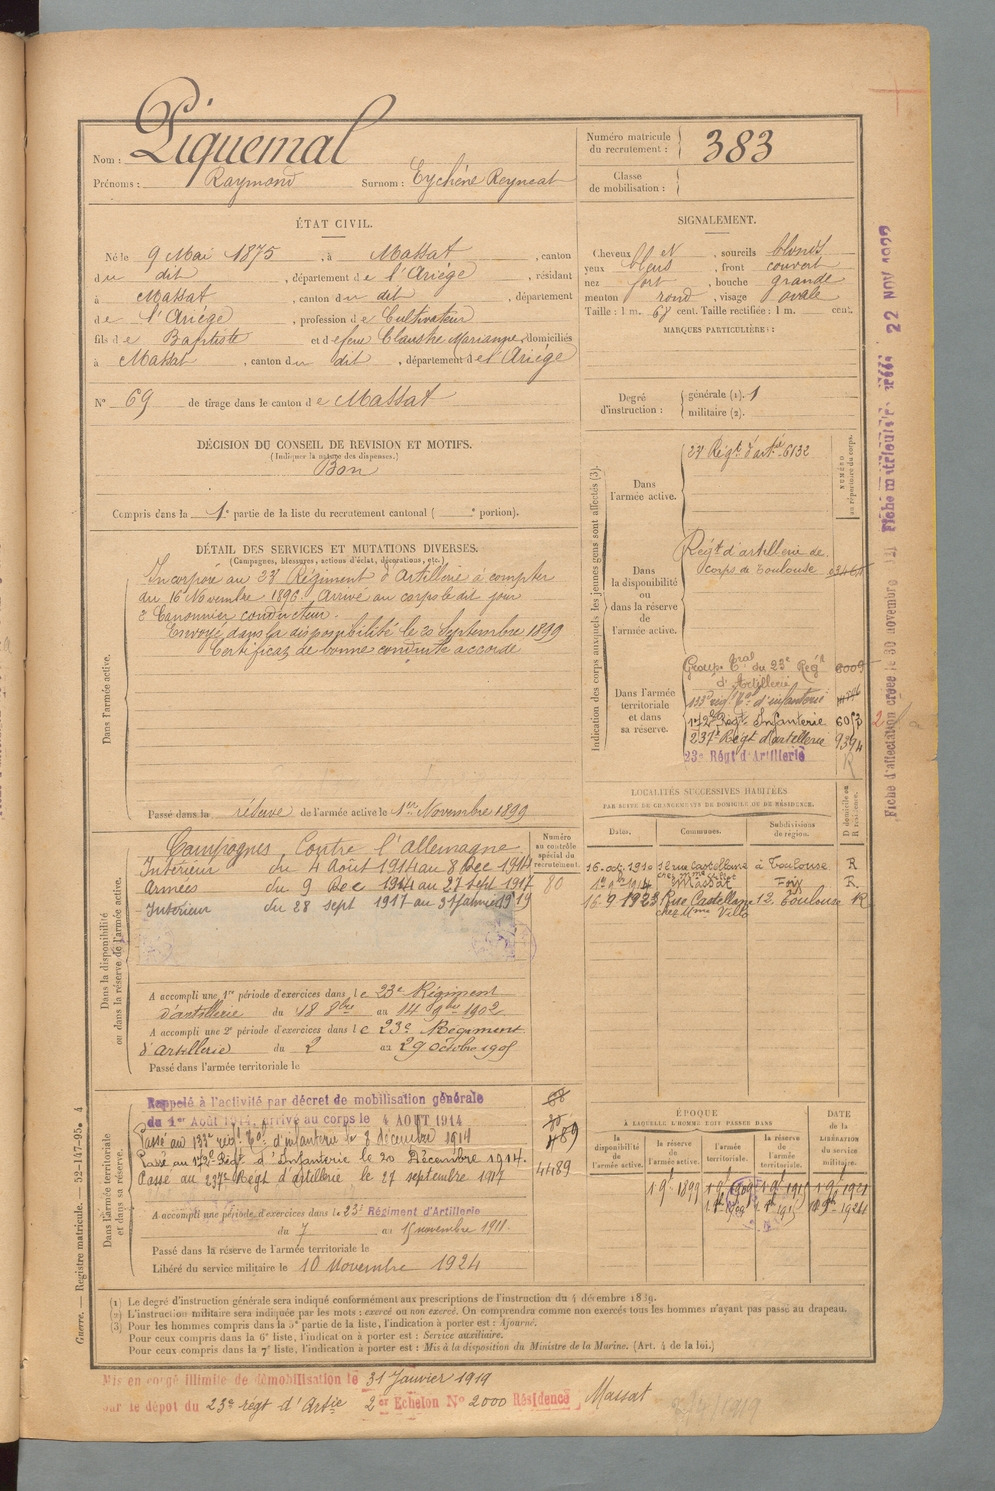 Nom : Piquemal
Prénoms : Raymond Surnom : Eychéne Reyneat
Numéro matricule du recrutement : 383
Classe de mobilisation :
ÉTAT CIVIL.
Né le 9 Mai 1875, à Massat, canton
du dit, département de l'Ariége, résidant
à Massat, canton du dit, département
de l'Ariége, profession de Cultivateur
fils de Baptiste et de feue Claustre Marianne, domiciliés
à Massat, canton du dit, département de l'Ariége
N° 69 de tirage dans le canton de Massat
SIGNALEMENT.
Cheveux, sourcils blonds
yeux bleus, front couvert
nez fort, bouche grande
menton rond, visage ovale
Taille : 1 m. 68 cent. Taille rectifiée : 1 m. cent.
MARQUES PARTICULIÈRES :
Degré d'instruction : générale (1). 1
militaire (2).
DÉCISION DU CONSEIL DE REVISION ET MOTIFS.
(Indiquer la nature des dispenses.)
Bon
Compris dans la 1e partie de la liste du recrutement cantonal ( e portion).
DÉTAIL DES SERVICES ET MUTATIONS DIVERSES.
(Campagnes, blessures, actions d'éclat, décorations, etc.)
Dans l'armée active.
Incorporé au 23e Régiment d'Artillerie à compter
du 16 Novembre 1896. Arrivé au corps le dit jour
2e Canonnier conducteur.
Envoyé dans la disponibilité le 20 Septembre 1899
Certificat de bonne conduite accordé
Passé dans la réserve de l'armée active le 1er Novembre 1899
Indication des corps auxquels les jeunes gens sont affectés (3).
NUMÉRO au répertoire du corps.
Dans l'armée active.
23e Régt d'artie 6132
Dans la disponibilité ou dans la réserve de l'armée active.
Régt d'artillerie de
corps de Toulouse
Dans l'armée territoriale et dans sa réserve.
Groupe Tal du 23e Régt
d'Artillerie
133e régt Tal d'infanterie
172e Régt Infanterie 6053
237e Régt d'artillerie 9394
23e Régt d'Artillerie R
LOCALITÉS SUCCESSIVES HABITÉES
PAR SUITE DE CHANGEMENTS DE DOMICILE OU DE RÉSIDENCE.
Dates. Communes. Subdivisions de région. D domicile ou R résidence.
16 oct. 1910 12 rue Castellane à Toulouse R
Massat Foix R
16-9 1923 Rue Castellane 12. Toulouse R
chez Mme Villa
Dans la disponibilité ou dans la réserve de l'armée active.
Numéro au contrôle spécial du recrutement.
Campagnes Contre l'allemagne
Intérieur du 4 Août 1914 au 8 Dec 1914
Armées du 9 Dec 1914 au 27 Sept 1917 80
Intérieur du 28 sept 1917 au 31 Janvier 1919
A accompli une 1re période d'exercices dans le 23e Régiment
d'artillerie du 18 8bre au 14 9bre 1902
A accompli une 2e période d'exercices dans le 23e Régiment
d'Artillerie du 2 au 29 octobre 1905
Passé dans l'armée territoriale le
Dans l'armée territoriale et dans sa réserve.
Rappelé à l'activité par décret de mobilisation générale
du 1er Août 1914, arrivé au corps le 4 AOÛT 1914
Passé au 133e régt Tal d'infanterie le 8 décembre 1914
Passé au 172e Régt d'Infanterie le 20 Décembre 1914.
Passé au 237e Régt d'artillerie le 27 septembre 1917
489
4489
A accompli une période d'exercices dans le 23e Régiment d'Artillerie
du 7 au 15 novembre 1911.
Passé dans la réserve de l'armée territoriale le
Libéré du service militaire le 10 Novembre 1924
ÉPOQUE
À LAQUELLE L'HOMME DOIT PASSER DANS
DATE DE LA LIBÉRATION du service militaire.
la disponibilité de l'armée active. la réserve de l'armée active. l'armée territoriale. la réserve de l'armée territoriale.
(1) Le degré d'instruction générale sera indiqué conformément aux prescriptions de l'instruction du 4 décembre 1889.
(2) L'instruction militaire sera indiquée par les mots : exercé ou non exercé. On comprendra comme non exercés tous les hommes n'ayant pas passé au drapeau.
(3) Pour les hommes compris dans la 5e partie de la liste, l'indication à porter est : Ajourné.
Pour ceux compris dans la 6e liste, l'indication à porter est : Service auxiliaire.
Pour ceux compris dans la 7e liste, l'indication à porter est : Mis à la disposition du Ministre de la Marine. (Art. 4 de la loi.)
Mis en congé illimité de démobilisation le 31 Janvier 1919
par le dépôt du 23e régt d'Artie 2er Echelon N° 2000 Résidence Massat
Guerre. — Registre matricule. — 52-147-95. 4
Fiche d'affectation créée le 30 novembre
Fiche matriculaire créée 22 NOV 1922